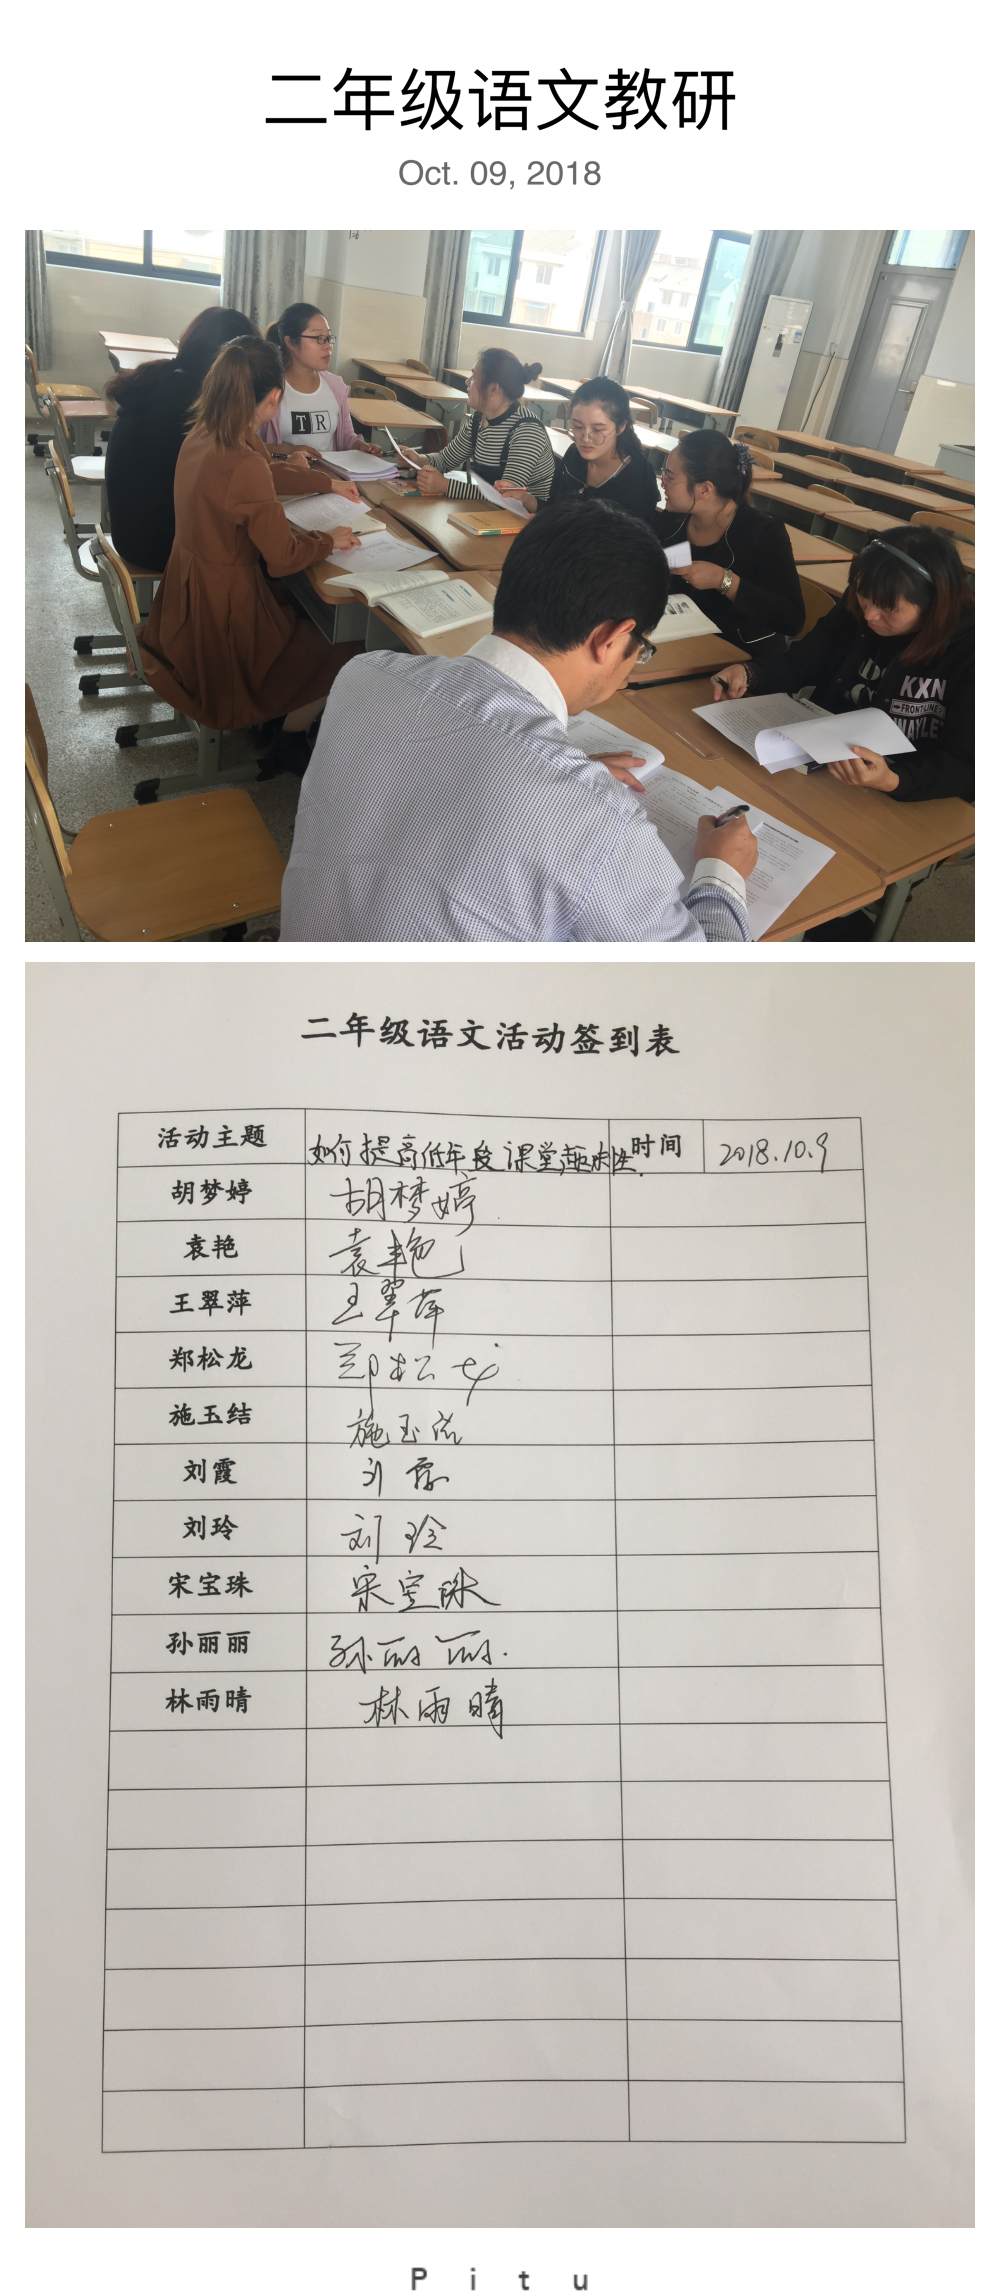 二年级语文教研
Oct. 09, 2018
TR
KXN
FRONTLINE
WAYLE
二年级语文活动签到表
活动主题 如何提高低年段课堂趣味性. 时间 2018.10.9
胡梦婷 胡梦婷
袁艳 袁艳
王翠萍 王翠萍
郑松龙 郑松龙
施玉结 施玉洁
刘霞 刘霞
刘玲 刘玲
宋宝珠 宋宝珠
孙丽丽 孙丽丽.
林雨晴 林雨晴
Pitu